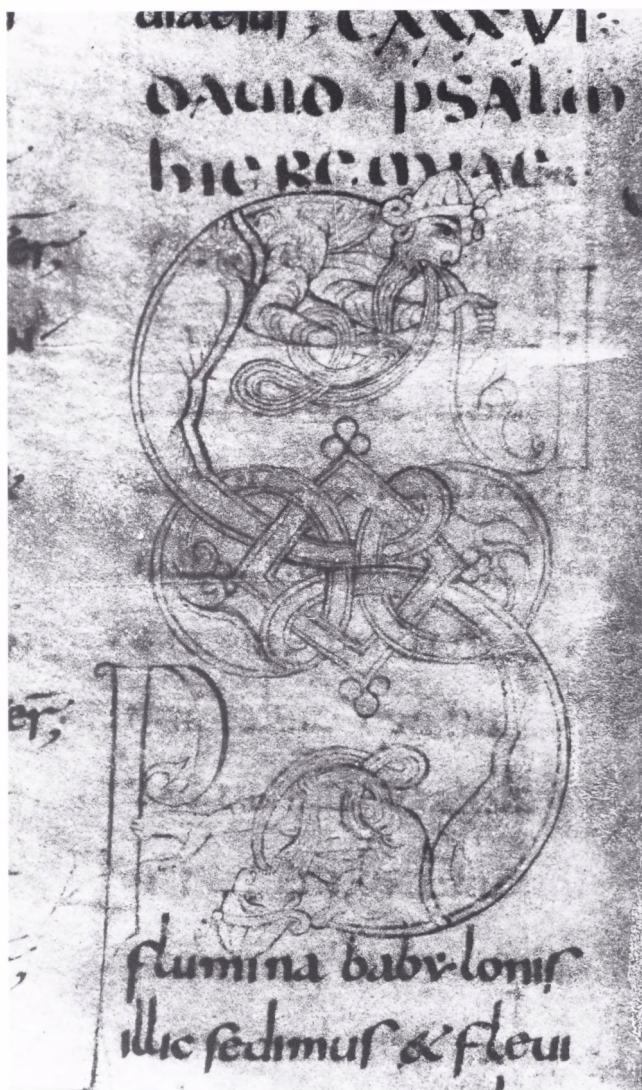 diaeius; CXXXVI:
DAUID PSALM
hIEREMIAE:
SUP
flumina babylonis
illic sedimus & fleui